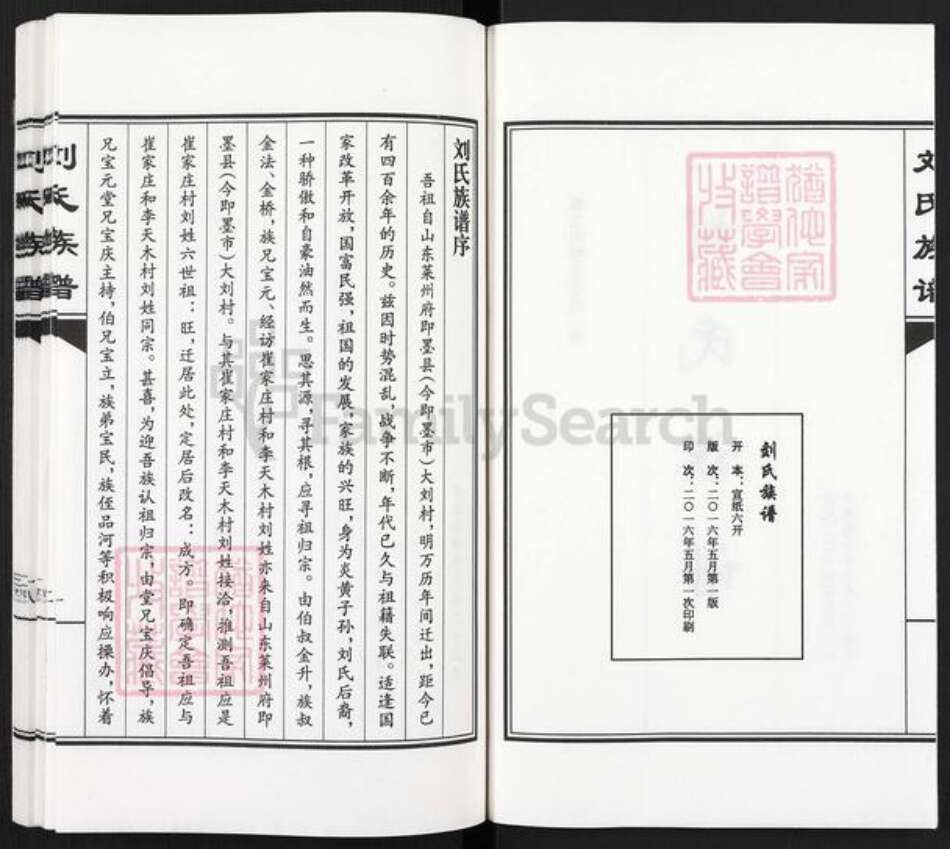 刘氏族谱
刘氏族谱
开 本：宣纸六开
版 次：二〇一六年五月第一版
印 次：二〇一六年五月第一次印刷
猶他家
譜學會
收藏
刘氏族谱序
吾祖自山东莱州府即墨县(今即墨市)大刘村，明万历年间迁出，距今已
有四百余年的历史。兹因时势混乱，战争不断，年代已久与祖籍失联。适逢国
家改革开放，国富民强，祖国的发展，家族的兴旺，身为炎黄子孙，刘氏后裔，
一种骄傲和自豪油然而生。思其源，寻其根，应寻祖归宗。由伯叔金升，族叔
金法、金桥，族兄宝元、经访崔家庄村和李天木村刘姓亦来自山东莱州府即
墨县(今即墨市)大刘村。与其崔家庄村和李天木村刘姓接洽，推测吾祖应是
崔家庄村刘姓六世祖：旺，迁居此处，定居后改名：成方。即确定吾祖应与
崔家庄和李天木村刘姓同宗。甚喜，为迎吾族认祖归宗，由堂兄宝庆倡导，族
兄宝元堂兄宝庆主持，伯兄宝立，族弟宝民，族侄品河等积极响应操办，怀着
猶他家
譜學會
收藏
刘氏族谱
FamilySearch